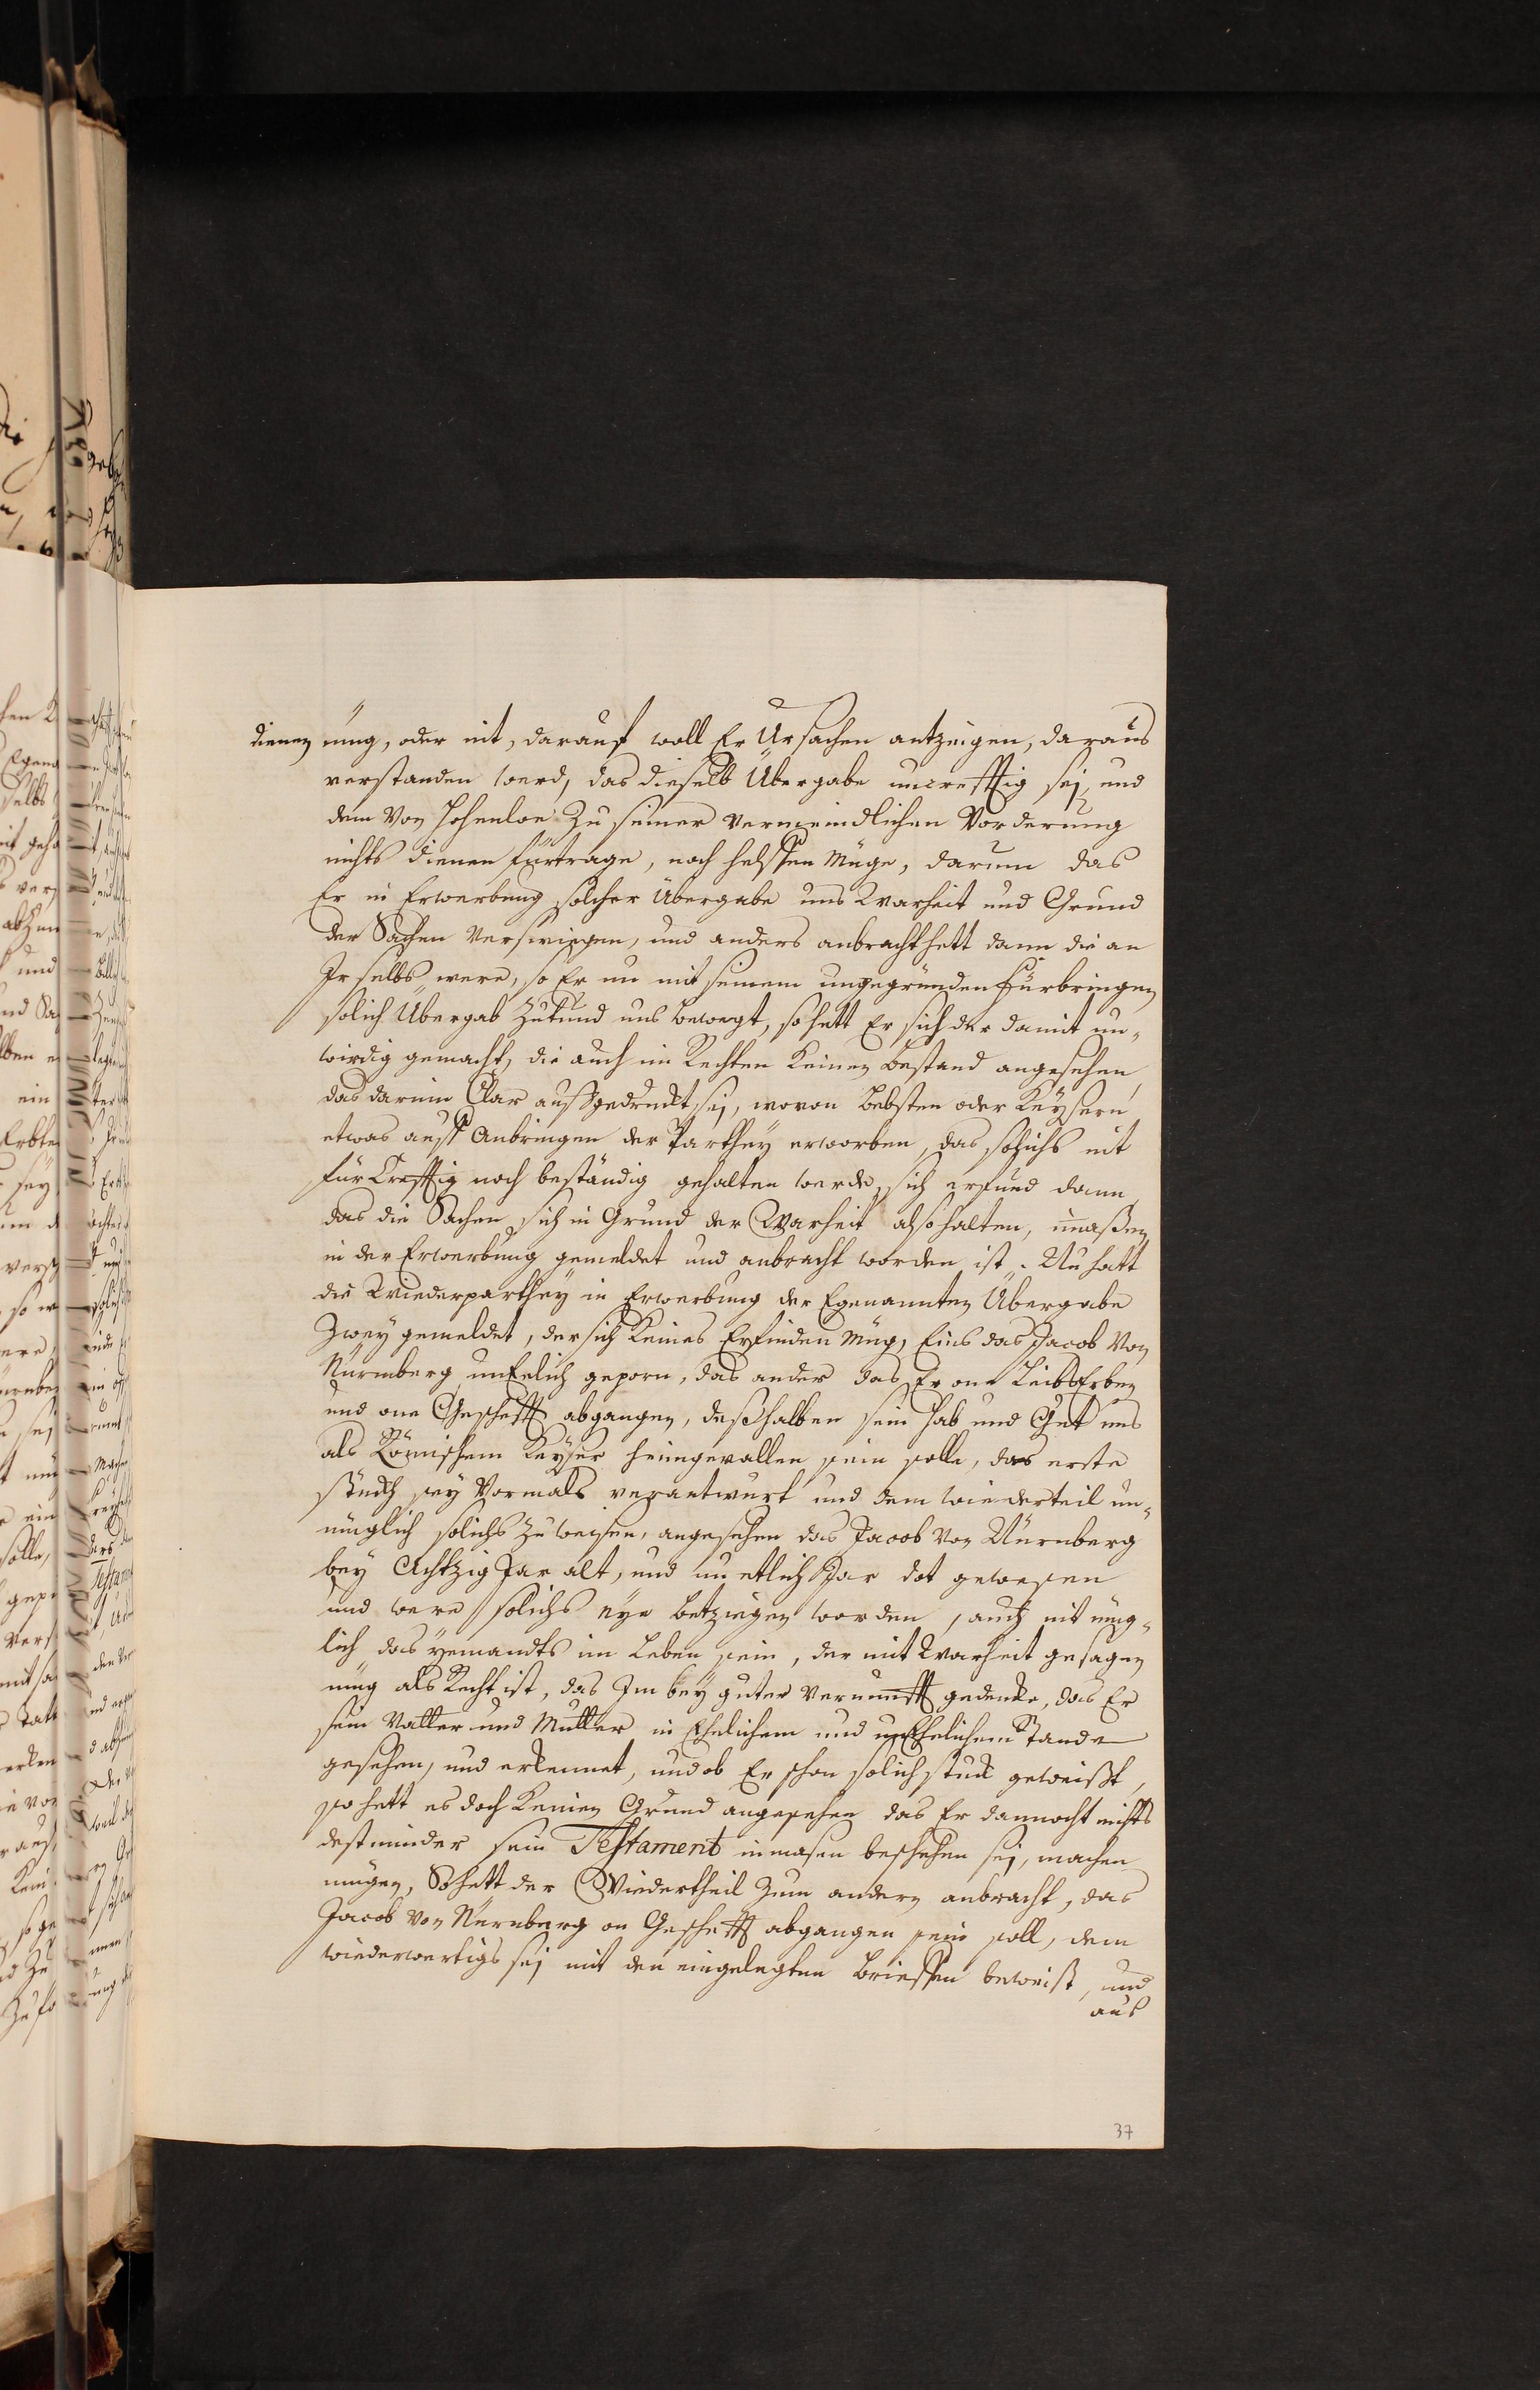 dienen müg, oder nit, darauf woll Er Ursachen antzeigen, daraus
verstanden werd, das dieselb Übergabe uncrefftig sej, und
dem Von Hohenloe Zu seiner vermeindlichen Vorderung
nichts dienen fürtrage, noch helffen müge, darum das
Er in Erwerbung solcher Übergabe uns Warheit und Grund
der Sachen verswigen, und anders anbracht hett dann die an
Ir selbs were, so Er nu mit seinem ungegründen fürbringen
solich Übergab Zutund uns bewegt, so hett Er sich der damit un-
wirdig gemacht, die auch im Rechten Keinen bestand angesehen
das darinn Clar außgedruckt sej, wovon Bebsten oder Keysern
etwas auff Anbringen der Parthey erworben, das solichs nit
für Crefftig noch beständig gehalten werde, sich erfund dann
das die Sachen sich in Grund der Warheit also halten, inmaßen
in der Erwerbung gemeldet und anbracht worden ist. Nu hatt
die Wiederparthey in Erwerbung der Egenannten Übergabe
Zwey gemeldet, der sich Keines Erfinden müg, Eins das Jacob Von
Nürmberg unEelich geporn, das ander das Er one LeibsErben
und one Geschefft abgangen, deßhalben sein Hab und Gut uns
als Römischem Keyser heimgevallen sein solle, das erste
stuckh sey Vormals verantwurt und dem wiederteil un-
müglich solichs Zu weisen, angesehen das Jacob Von Nürnberg
bey Achtzig Jar alt, und nu etlich Jar dot gewesen
und were solichs nye betzeigen worden, auch nit müg-
lich das yemandts im Leben sein, der mit Warheit gesagen
müg als Recht ist, das Im bey guter Vernunfft gedencke, das Er
sein Vatter und Mutter in Ehelichem und unEhelichem Stande
gesehen, und erkennet, und ob Er schon solich stuck geweißt,
so hett es doch Keinen Grund angesehen das Er dannocht nichts
destminder sein Testament inmasen beschehen sej, machen
mügen, So hett der Wiedertheil Zum andern anbracht, das
Jacob Von Nürnberg on Geschefft abgangen sein soll, dem
wiederwertigs sej mit den eingelegten Brieffen beweist, und
aus
37